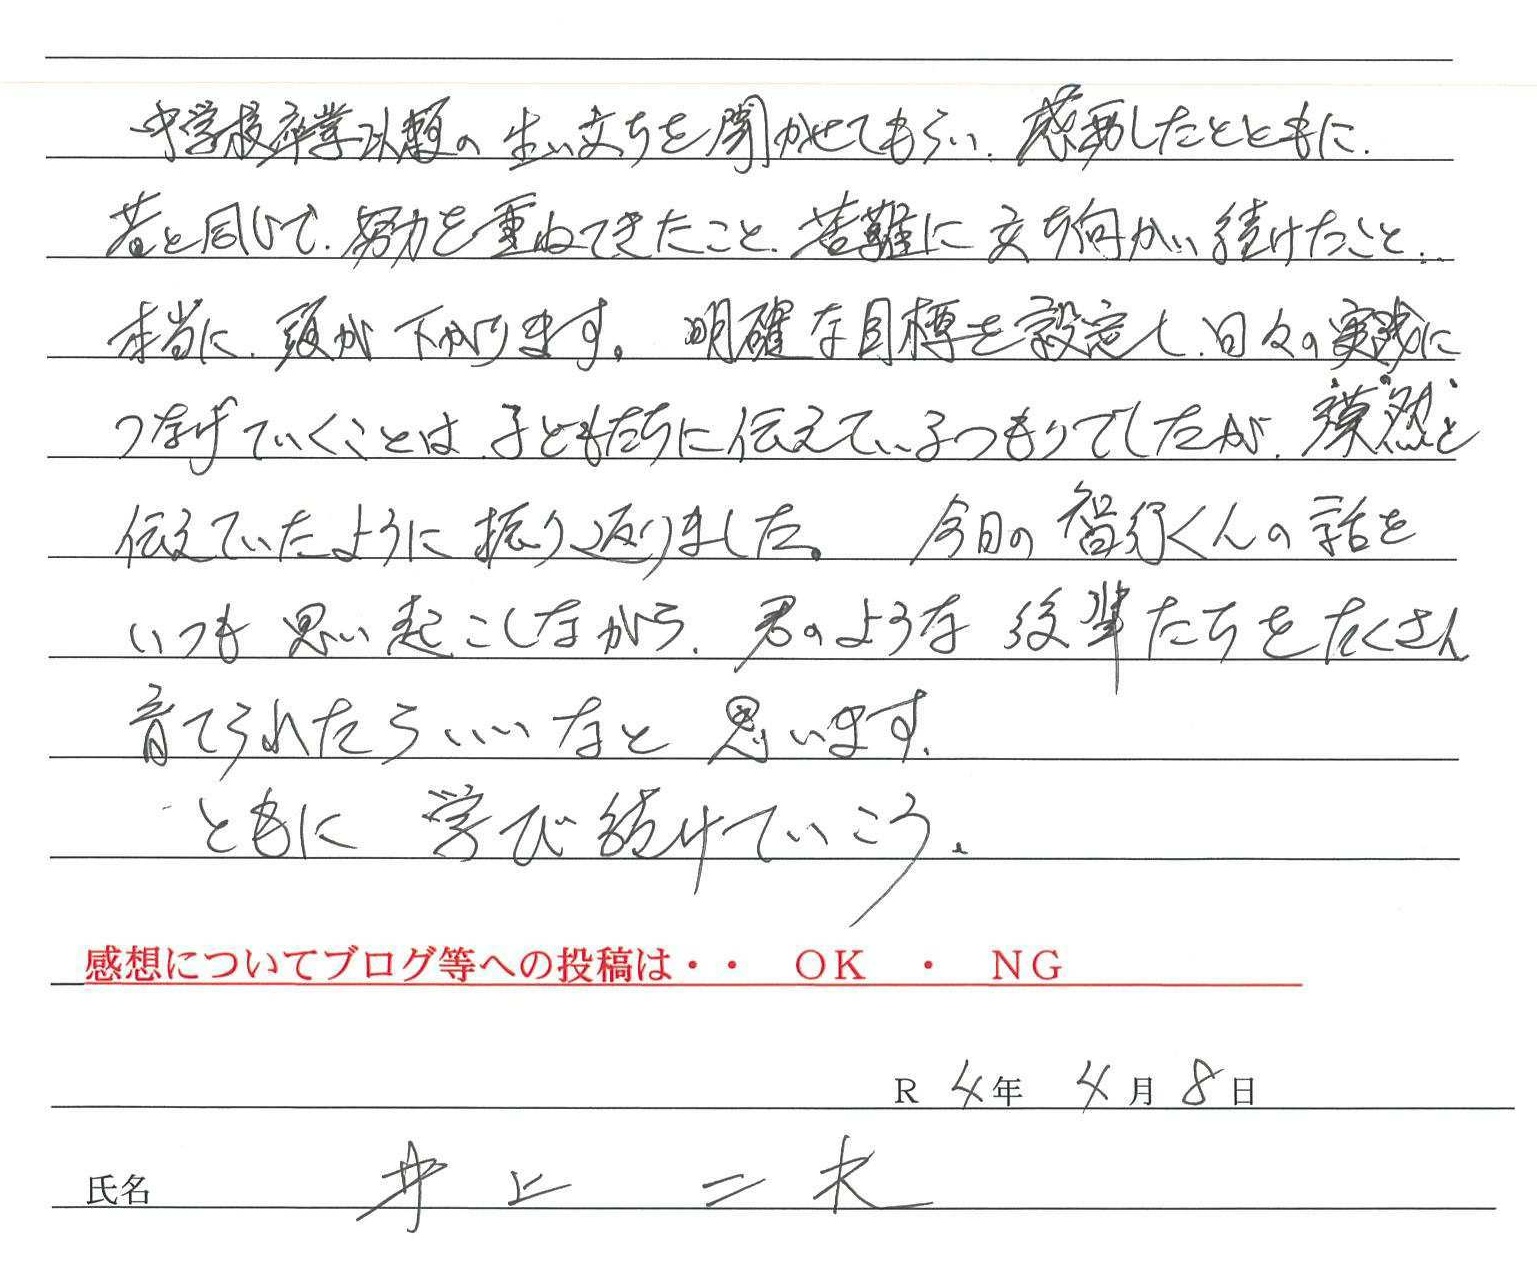 中学校卒業以題の生い立ちを聞かせてもらい、感動したとともに、
昔と同じで、努力を重ねてきたこと、苦難に立ち向かい続けたこと、
本当に、頭が下がります。 明確な目標を設定し、日々の実践に
つなげていくことは、子どもたちに伝えているつもりでしたが、漠然と
伝えていたように振り返りました。 今日の智行くんの話を
いつも思い起こしながら、君のような後輩たちをたくさん
育てられたらいいなと思います。
ともに 学び続けていこう。
感想についてブログ等への投稿は・・ OK ・ NG
R 4年 4月 8日
氏名 井上 二夫